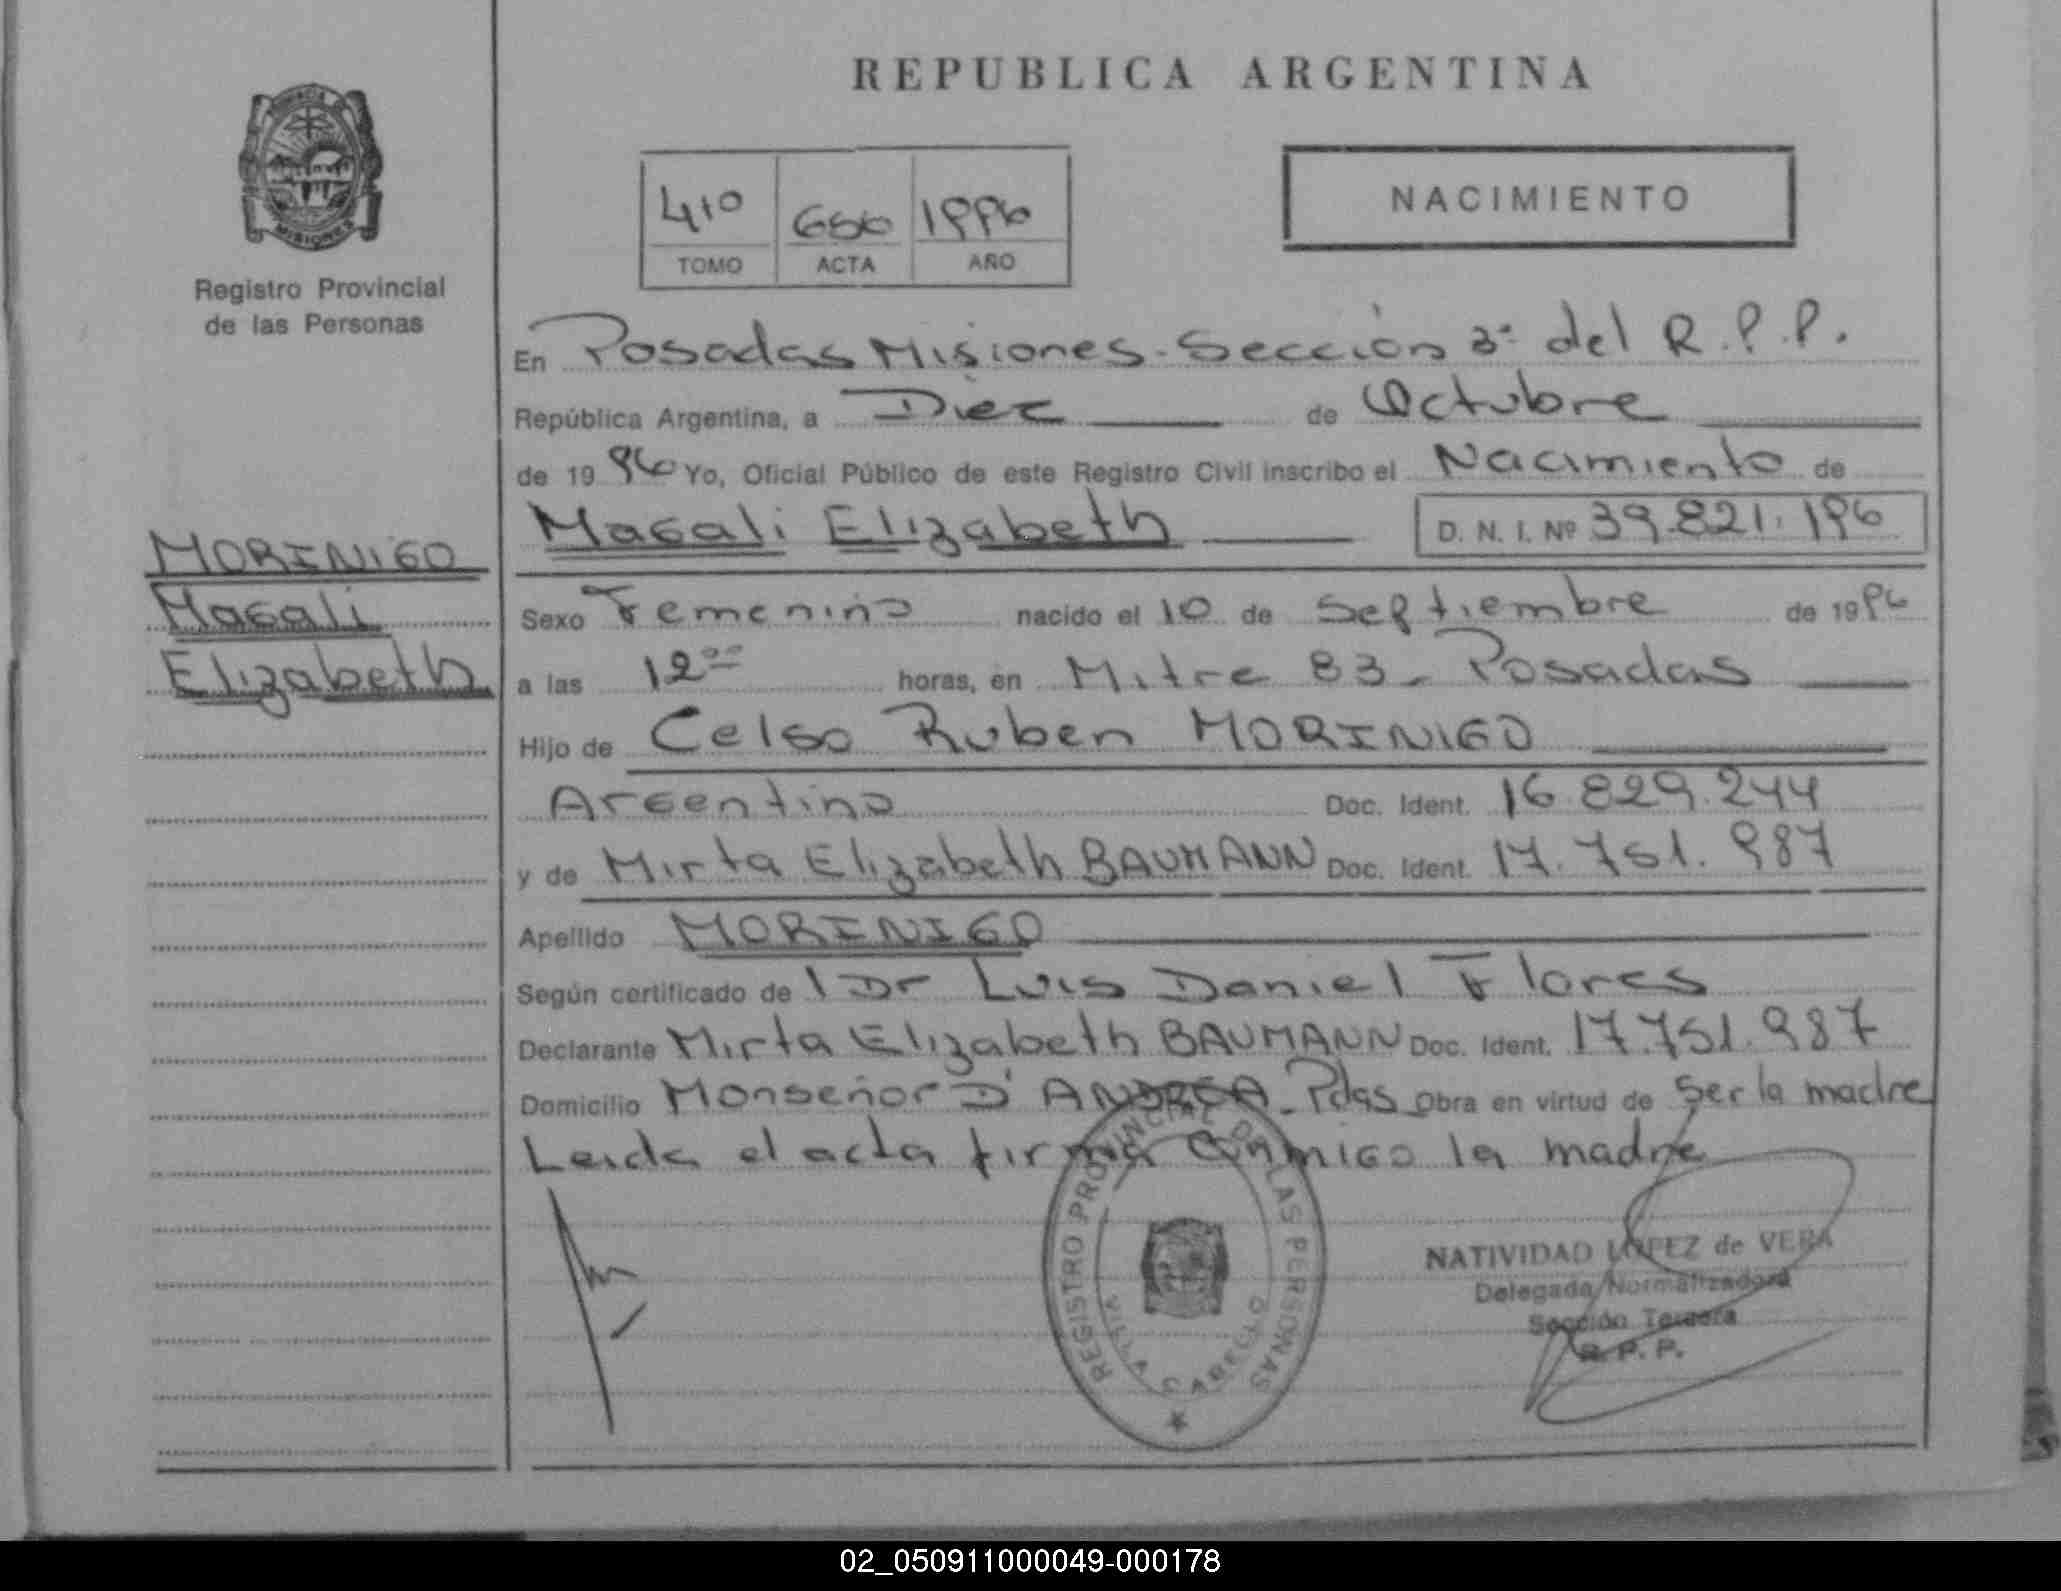 REPUBLICA ARGENTINA
PROVINCIA DE
MISIONES
Registro Provincial
de las Personas
410 TOMO
ACTA
1996 AÑO
NACIMIENTO
En Posadas Misiones - Sección 3ª del R.P.P.
República Argentina, a Diez de Octubre
de 1996 Yo, Oficial Público de este Registro Civil inscribo el Nacimiento de
Magali Elizabeth D. N. I. Nº 39.821.196
MORINIGO
Magali
Elizabeth
Sexo Femenino nacido el 10 de Septiembre de 1996
a las 12⁰⁰ horas, en Mitre 83 - Posadas
Hijo de Celso Ruben MORINIGO
Argentino Doc. Ident. 16.829.244
y de Mirta Elizabeth BAUMANN Doc. Ident. 17.751.987
Apellido MORINIGO
Según certificado de l Dr Luis Daniel Flores
Declarante Mirta Elizabeth BAUMANN Doc. Ident. 17.751.987
Domicilio Monseñor D' ANDREA - Pdas Obra en virtud de Ser la madre
Leida el acta firma conmigo la madre
REGISTRO PROVINCIAL DE LAS PERSONAS
VILLA CABELLO
NATIVIDAD LOPEZ de VERA
Delegada Normalizadora
Sección Tercera
R. P. P.
02_050911000049-000178